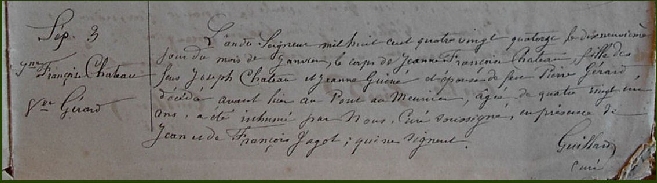 Sép. 3
Jne Françoise Chateau
Vve Gérard
L'an du Seigneur mil huit cent quatre vingt quatorze le dix neuvième
jour du mois de Janvier, le corps de Jeanne Françoise Chateau fille des
feus Joseph Chateau et Jeanne et épouse de feu Pierre Gérard
décédée avant hier au Pont au Meunier, âgée de quatre vingt un
ans, a été inhumé par Nous, Curé soussigné, en présence de
Jean et de François Jagot, qui ne signent.
Guillard
curé